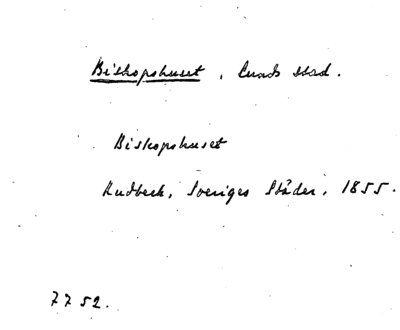 Biskopshuset, Lunds stad.
Biskopshuset
Rudbeck, Sveriges Städer, 1855.
7752.